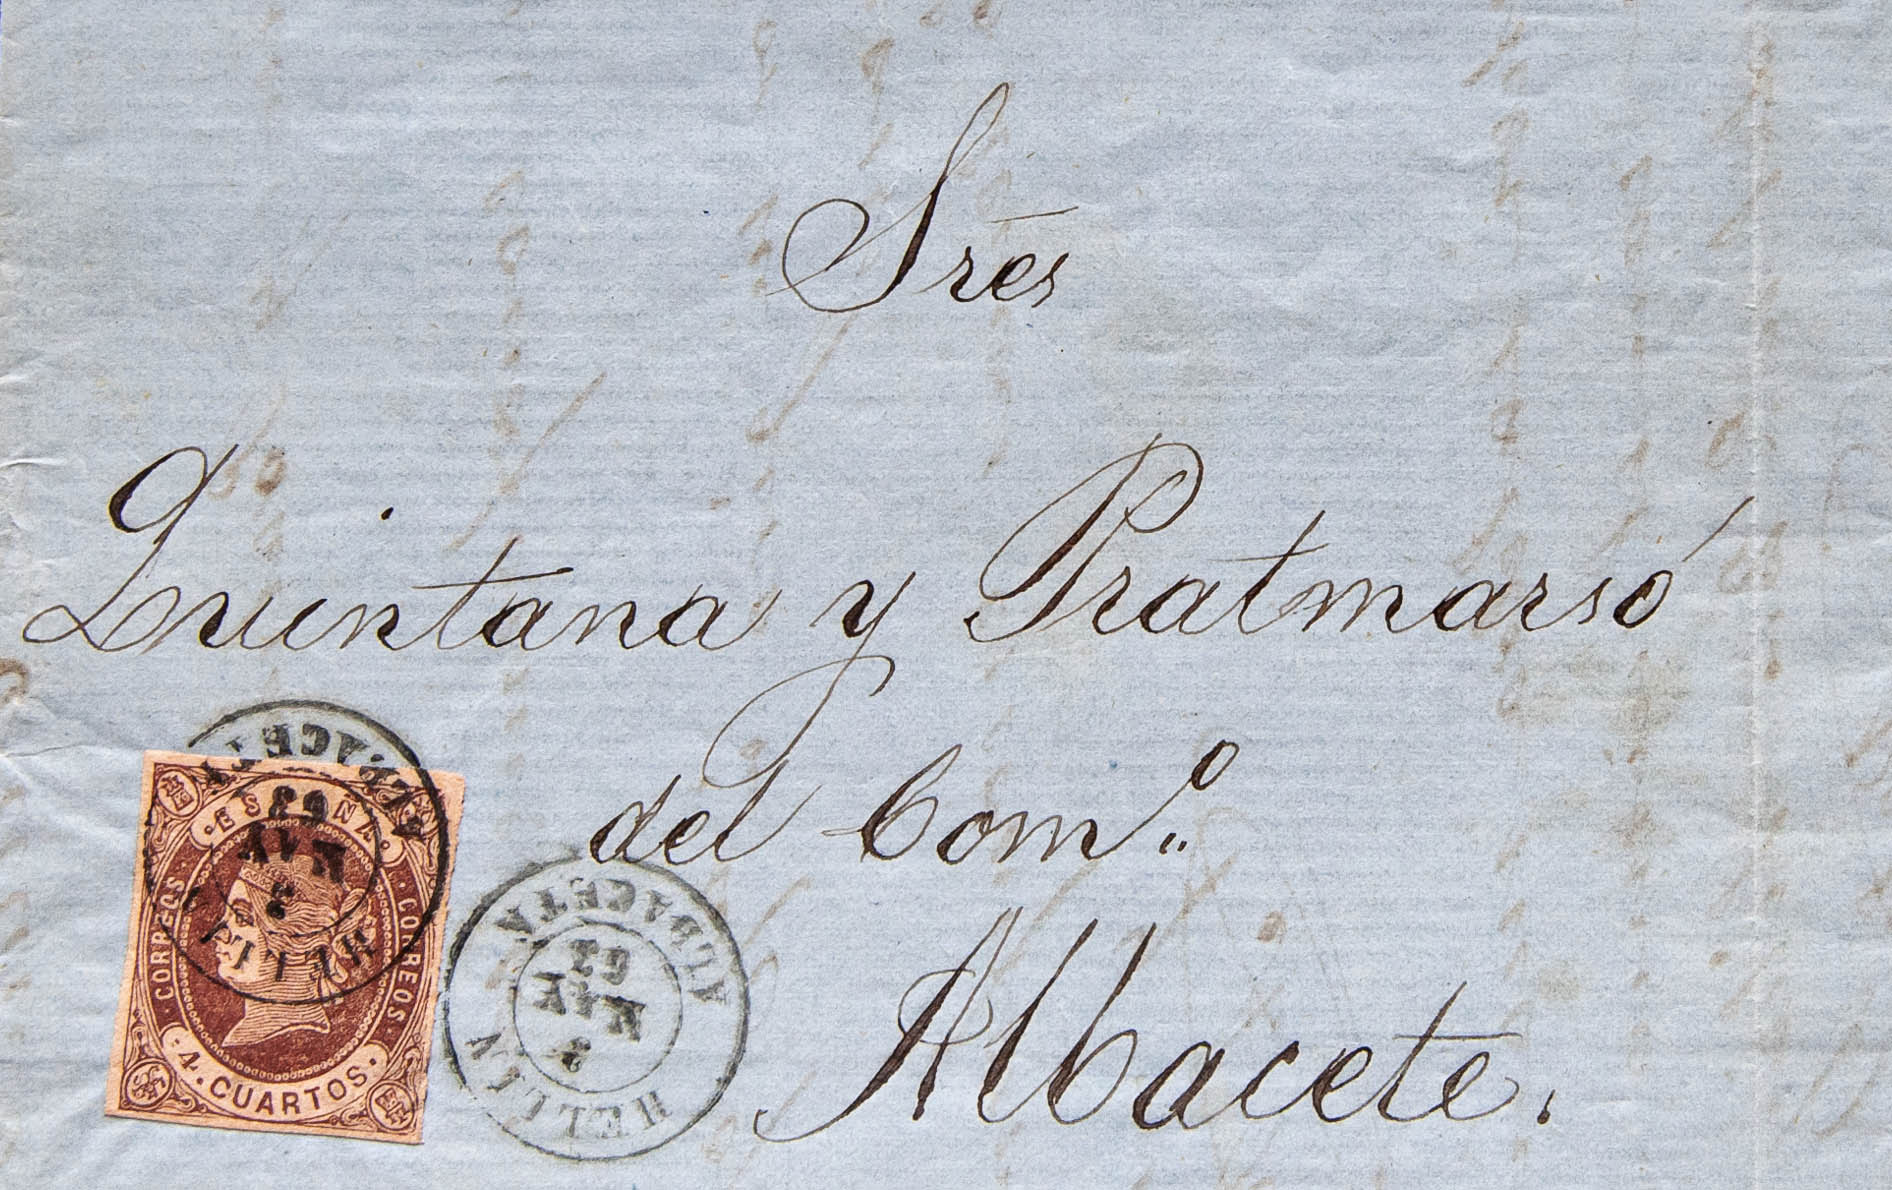 Sres
Quintana y Pratmarsó
del Com.º
Albacete.
ESPAÑA
CORREOS
CORREOS
4 CUARTOS
ALBACETE
63
MAY
HELLIN
ALBACETA
63
MAY
2
HELLIN